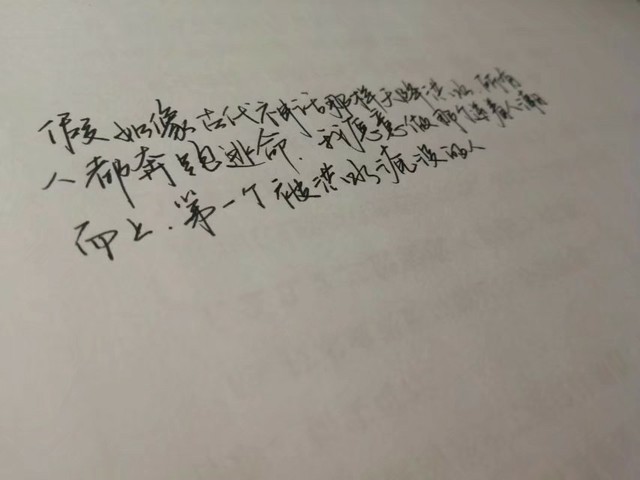 假如像古代神话那样天降洪水 所有
人都奔跑逃命.我愿意做那个逆着人潮
而上.第一个被洪水淹没的人